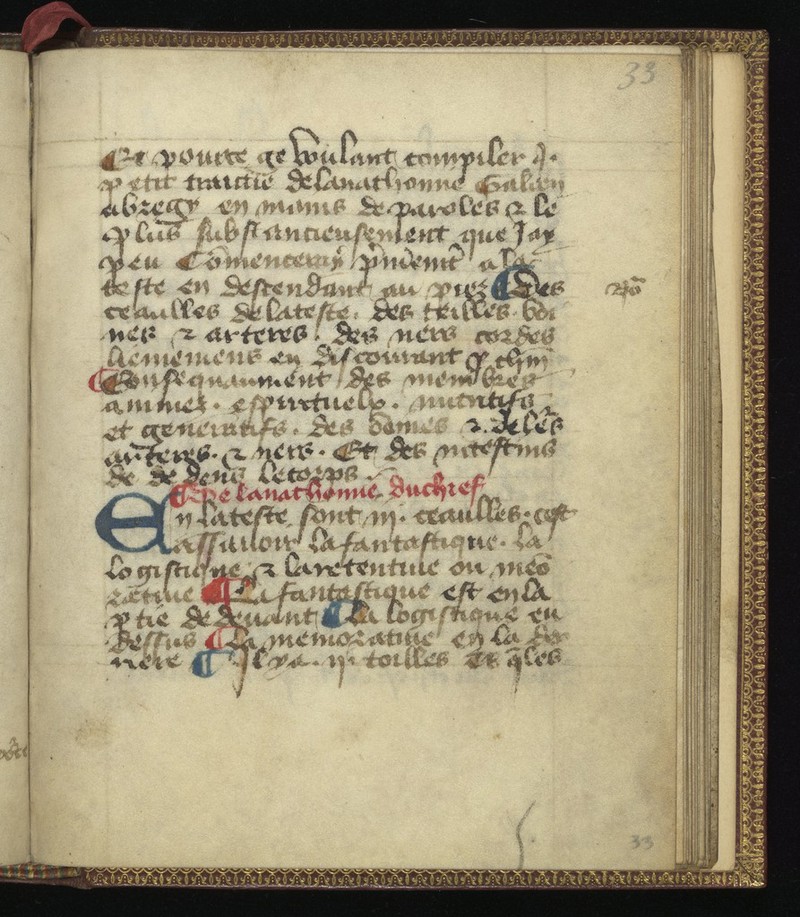 33
Et pource ge voulant compiler .j.
petit traictie delanathomie Galien
abregy en moins de paroles ⁊ le
plus substancieusement que Jay
peu Comenceray p̄mem̄t ala
teste en descendant au piez ¶ Des
ceaulles delateste. des teilles. voi
nes ⁊ arteres. des ners cordes
liemiemens en discourant
¶ Consequaument des membres
animez. espirituelx. nutritifs
et generatifs. des voines ⁊ deles
arteres. ⁊ ners. Et des intestins
de de dens lecorps.
¶ De lanathomie duchief
En lateste sont iij. ceaulles. cest
assavoir la fantastique. la
logistique ⁊ la retentive ou mēo
rative ¶ La fantastique est en la
ptie de devant ¶ La logistique en
dessus ¶ la memorative en la der
niere ¶ Il ya. ij. toilles es q̄les
33